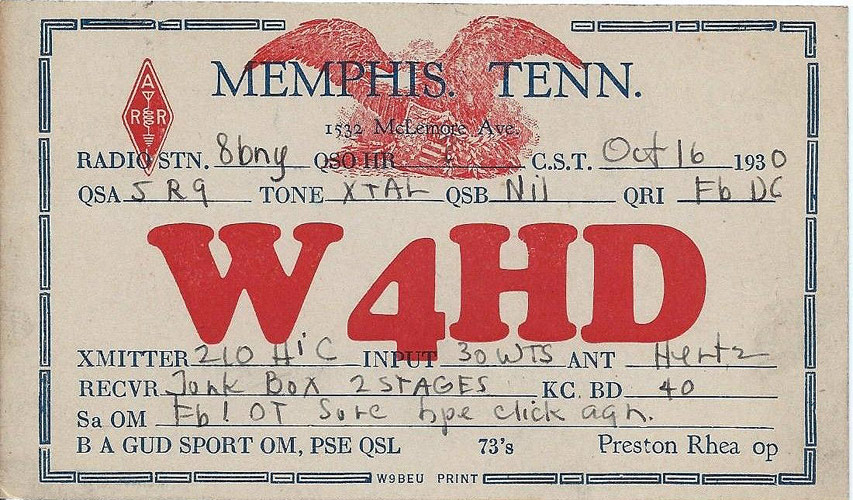 MEMPHIS. TENN.
A
R R
L
1532 McLemore Ave.
RADIO STN. 8bny QSO HR C.S.T. Oct 16 1930
QSA 5 R9 TONE XTAL QSB Nil QRI Fb DC
W4HD
XMITTER 210 Hi C INPUT 30 WTS ANT Hertz
RECVR Junk Box 2 STAGES KC. BD 40
Sa OM Fb! OT Sure hpe click agn.
B A GUD SPORT OM, PSE QSL 73's Preston Rhea op
W9BEU PRINT